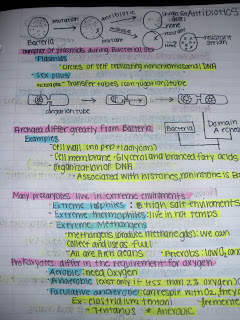 Antibiotics
mutation
antibiotic
Bacteria
mutant
resistant
strain
Transfer of plasmids during Bacterial Sex
Plasmids
circles of self replicating nonchromosomal DNA
Sex pilus
Transfer tubes (conjugation) tube
conjugation tube
Archaea differ greatly from Bacteria
Bacteria
Domain
Archaea
Examples
- Cell wall (no peptidoglycan)
- Cell membrane - Glycerol and branced fatty acids
- Organization of DNA
- Associated with histones, non histone is Bac
Many prokaryotes live in extreme enviroments
- Extreme halophiles: high salt enviroments
- Extreme thermophiles: live in hot temps
- Extreme Methanogens
- methanogens (produce methane gas): we can
collect and use as fuel
- All are Archaeans
Anaerobs: low O₂ and
Prokaryotes differ in the requirements for oxygen
- Aerobic: need Oxygen
- Anaerobic (exist only if less than 2% oxygen)
- Facultative anaerobic: can respire with O₂, they
Ex: clostridium tetani
- Tentanus
* Anerobic